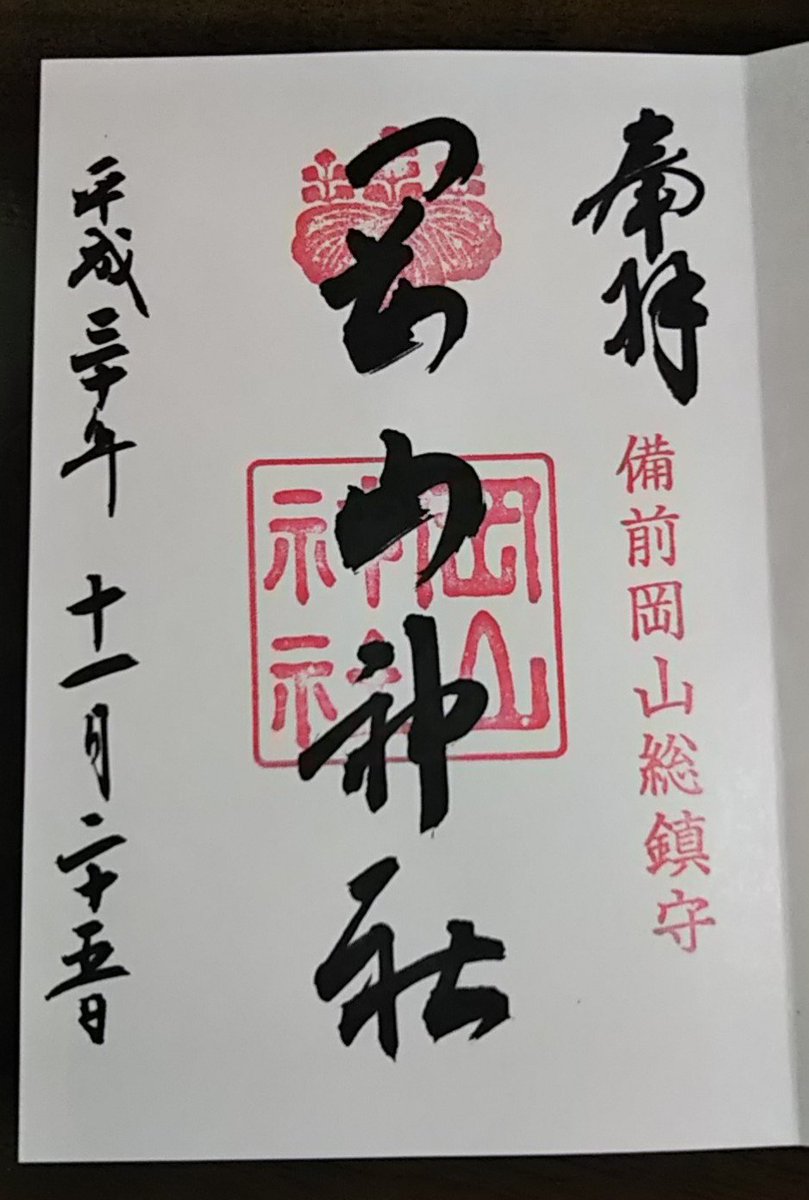 奉拝
備前岡山総鎮守
岡山神社
岡山
神社
平成三十年 十一月二十五日